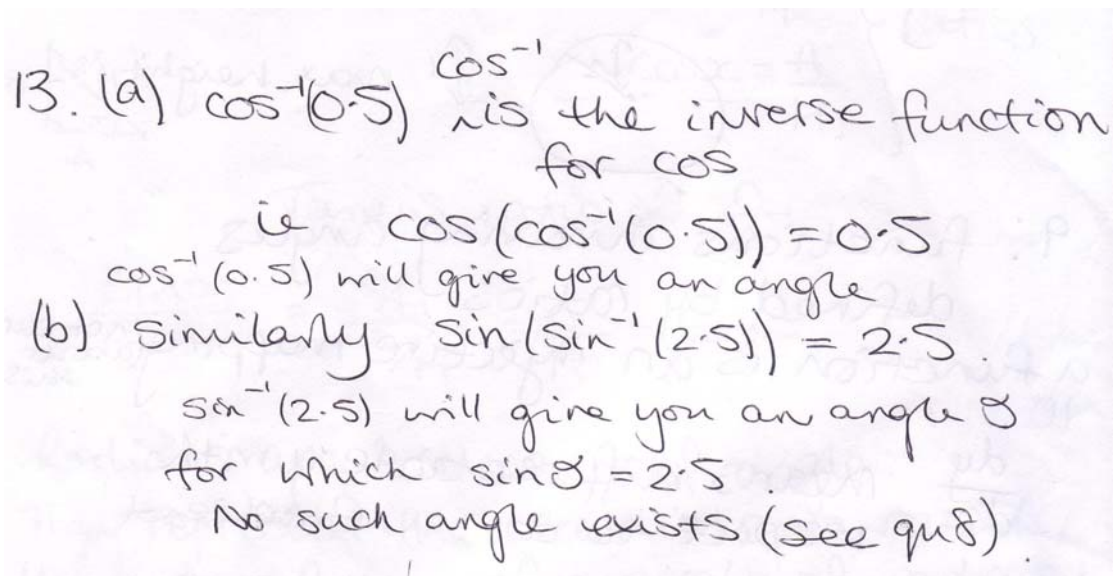 13. (a) cos⁻¹(0.5) ‸ cos⁻¹ is the inverse function
for cos
ie cos(cos⁻¹(0.5)) = 0.5
cos⁻¹(0.5) will give you an angle
(b) Similarly sin(sin⁻¹(2.5)) = 2.5.
sin⁻¹(2.5) will give you an angle γ
for which sin γ = 2.5.
No such angle exists (see qu8).